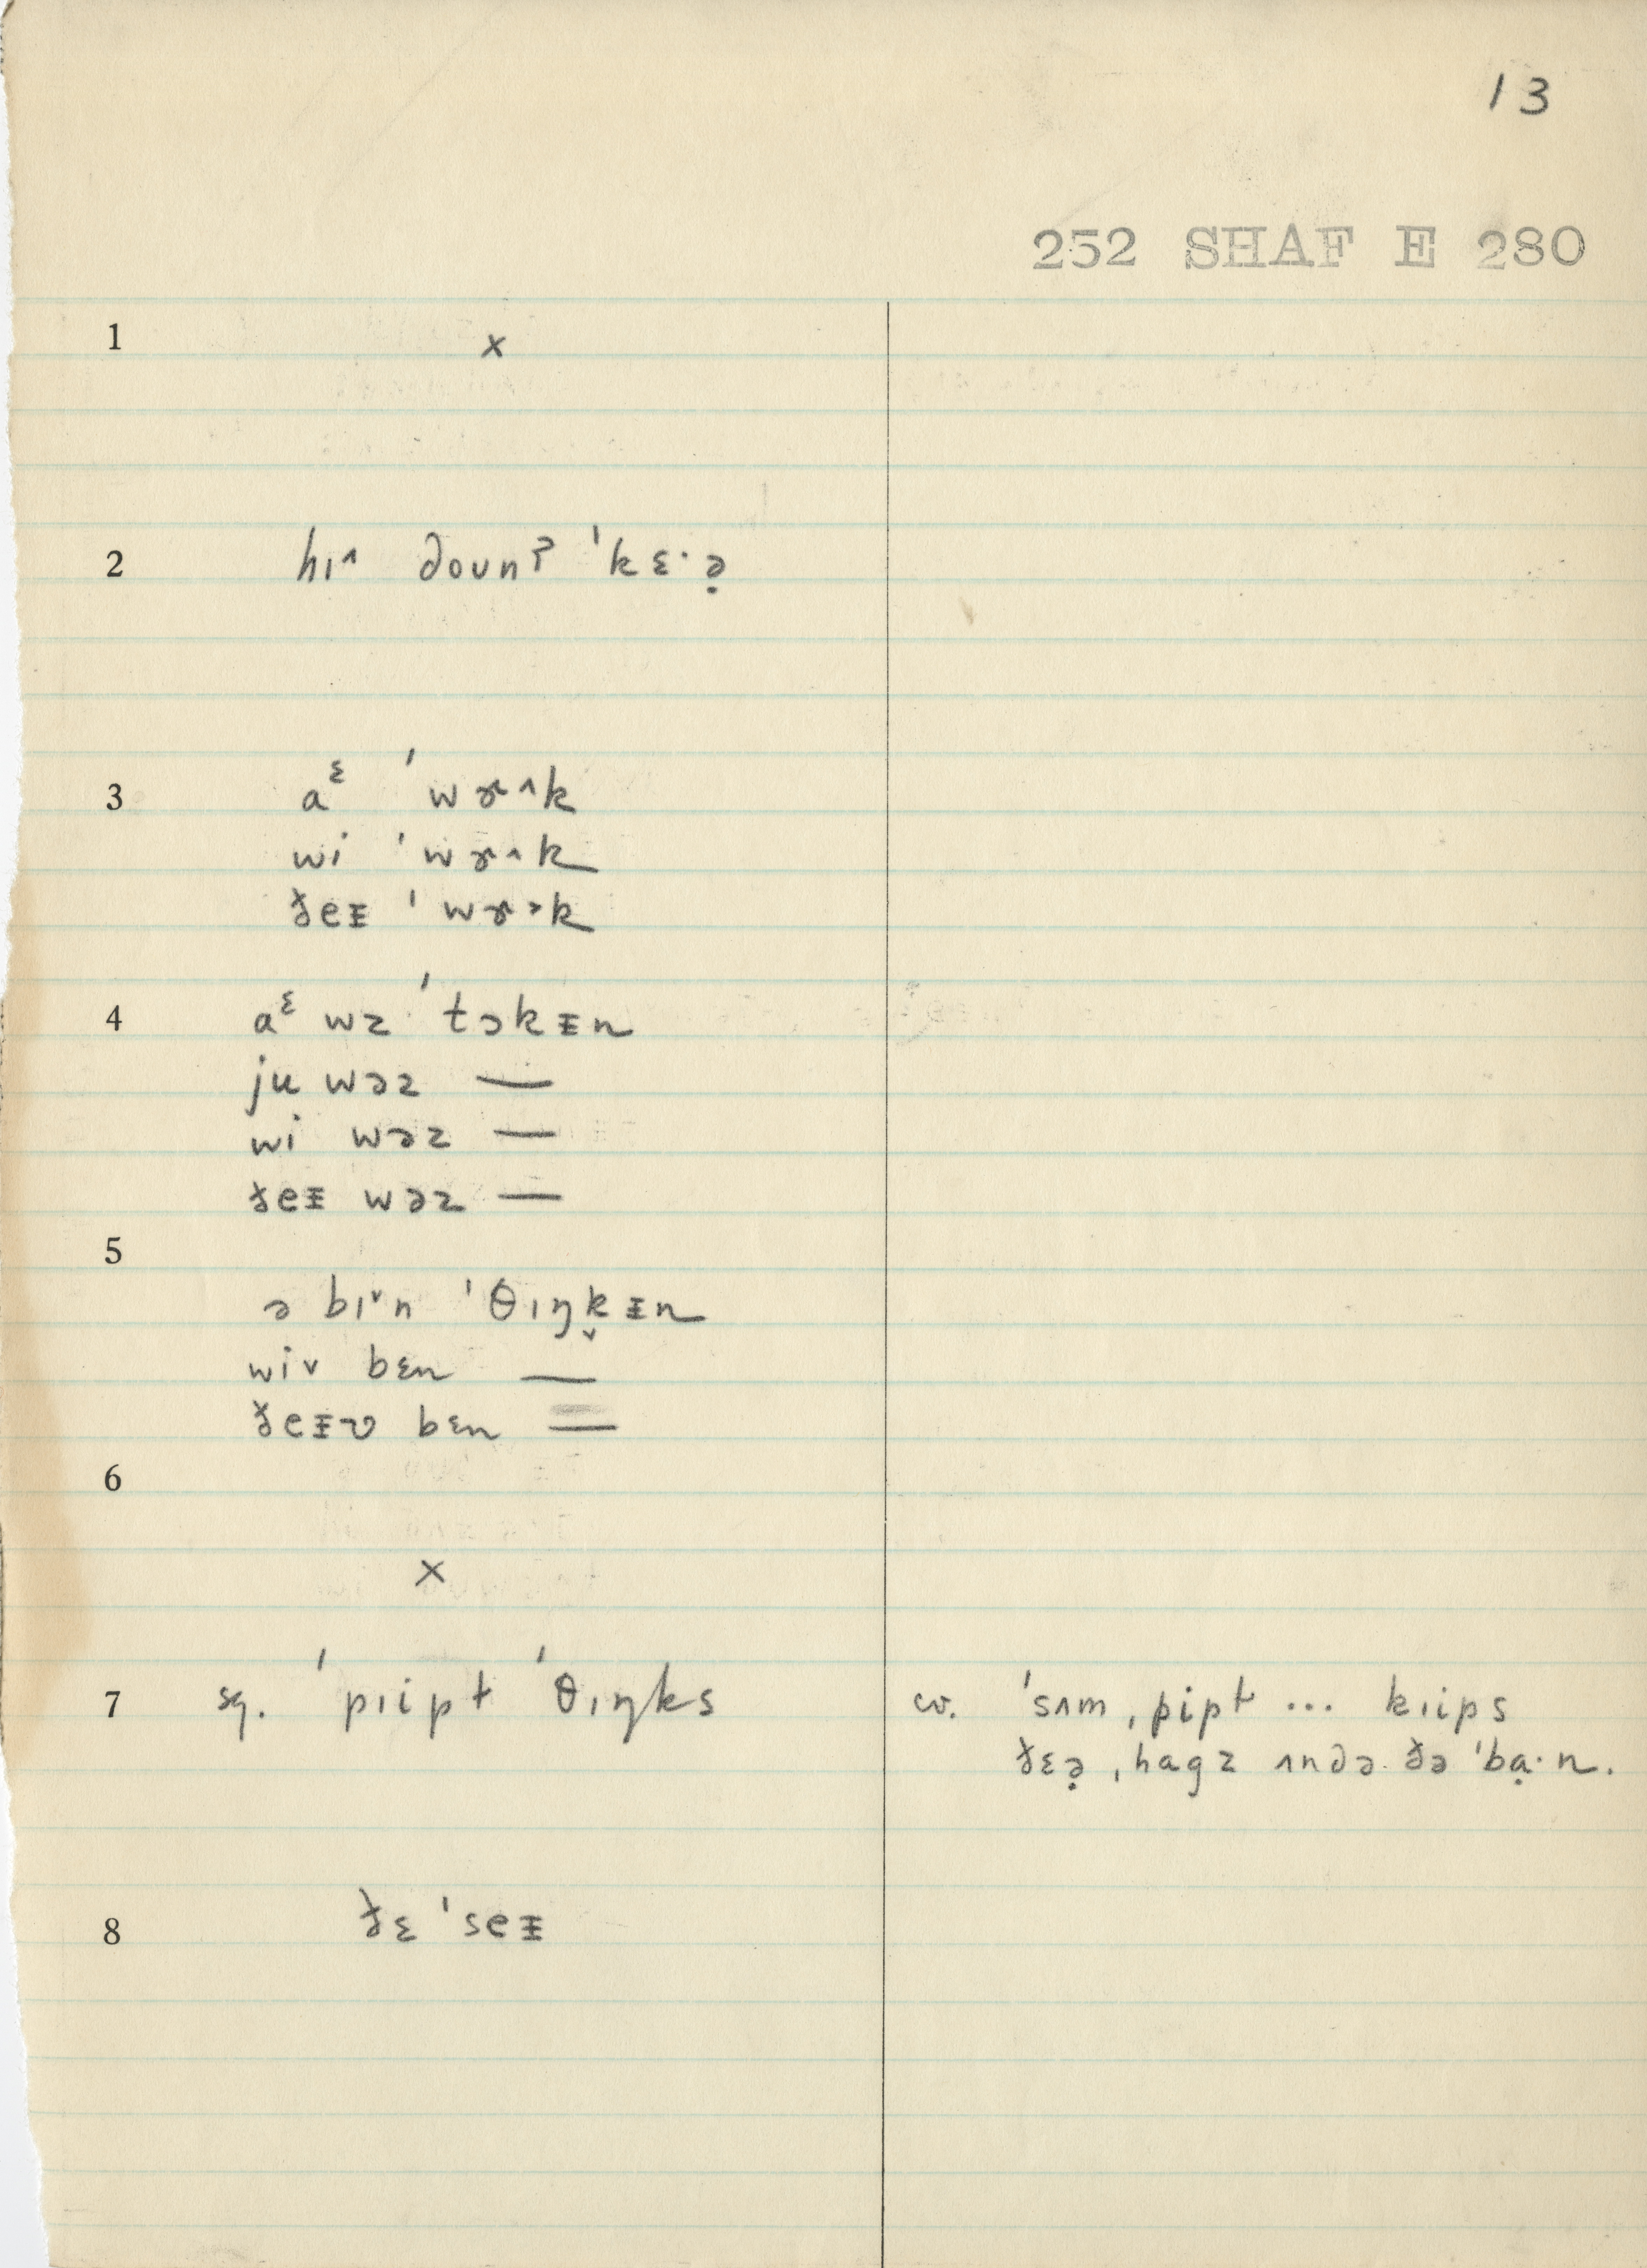 13
252 SHAF E 280
1 ×
2 hɪ˄ dounʔ ˈkɛ·ə̣
3 aᵋ ˈwɤ˄k
wi ˈwɤ˄k
ðeᵻ ˈwɤ˃k
4 aᵋ wz ˈtɔkᵻn
ju wəz —
wi wəz —
ðeᵻ wəz —
5 ə bɪ˅n ˈθɪŋk̬ᵻn
wiv bɛn —
ðeᵻv bɛn —
6 ×
7 sg. ˈpɪipɫ ˈθɪŋks
cv. ˈsʌm ˌpipɫ ... kɪips
ðɛə̣ ˌhagz ʌndə ðə ˈbạ·n.
8 ðɛ ˈseᵻ